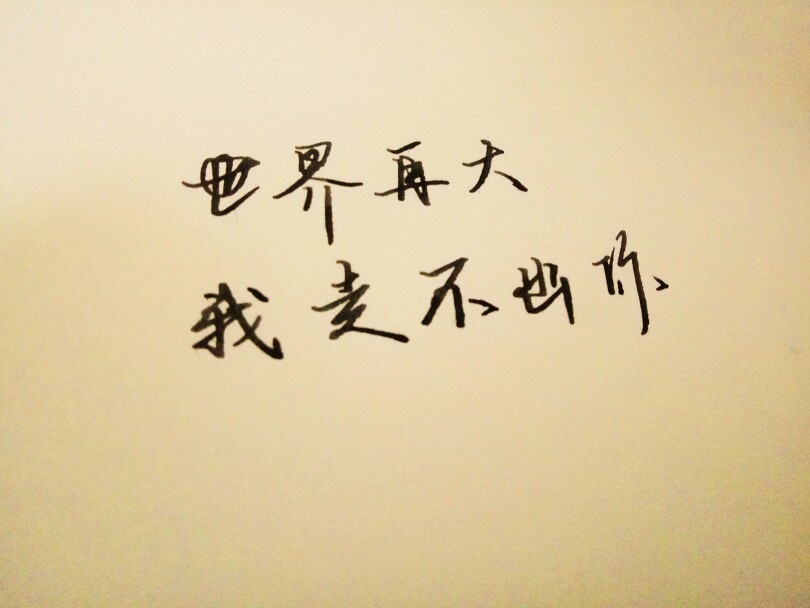 世界再大
我走不出你